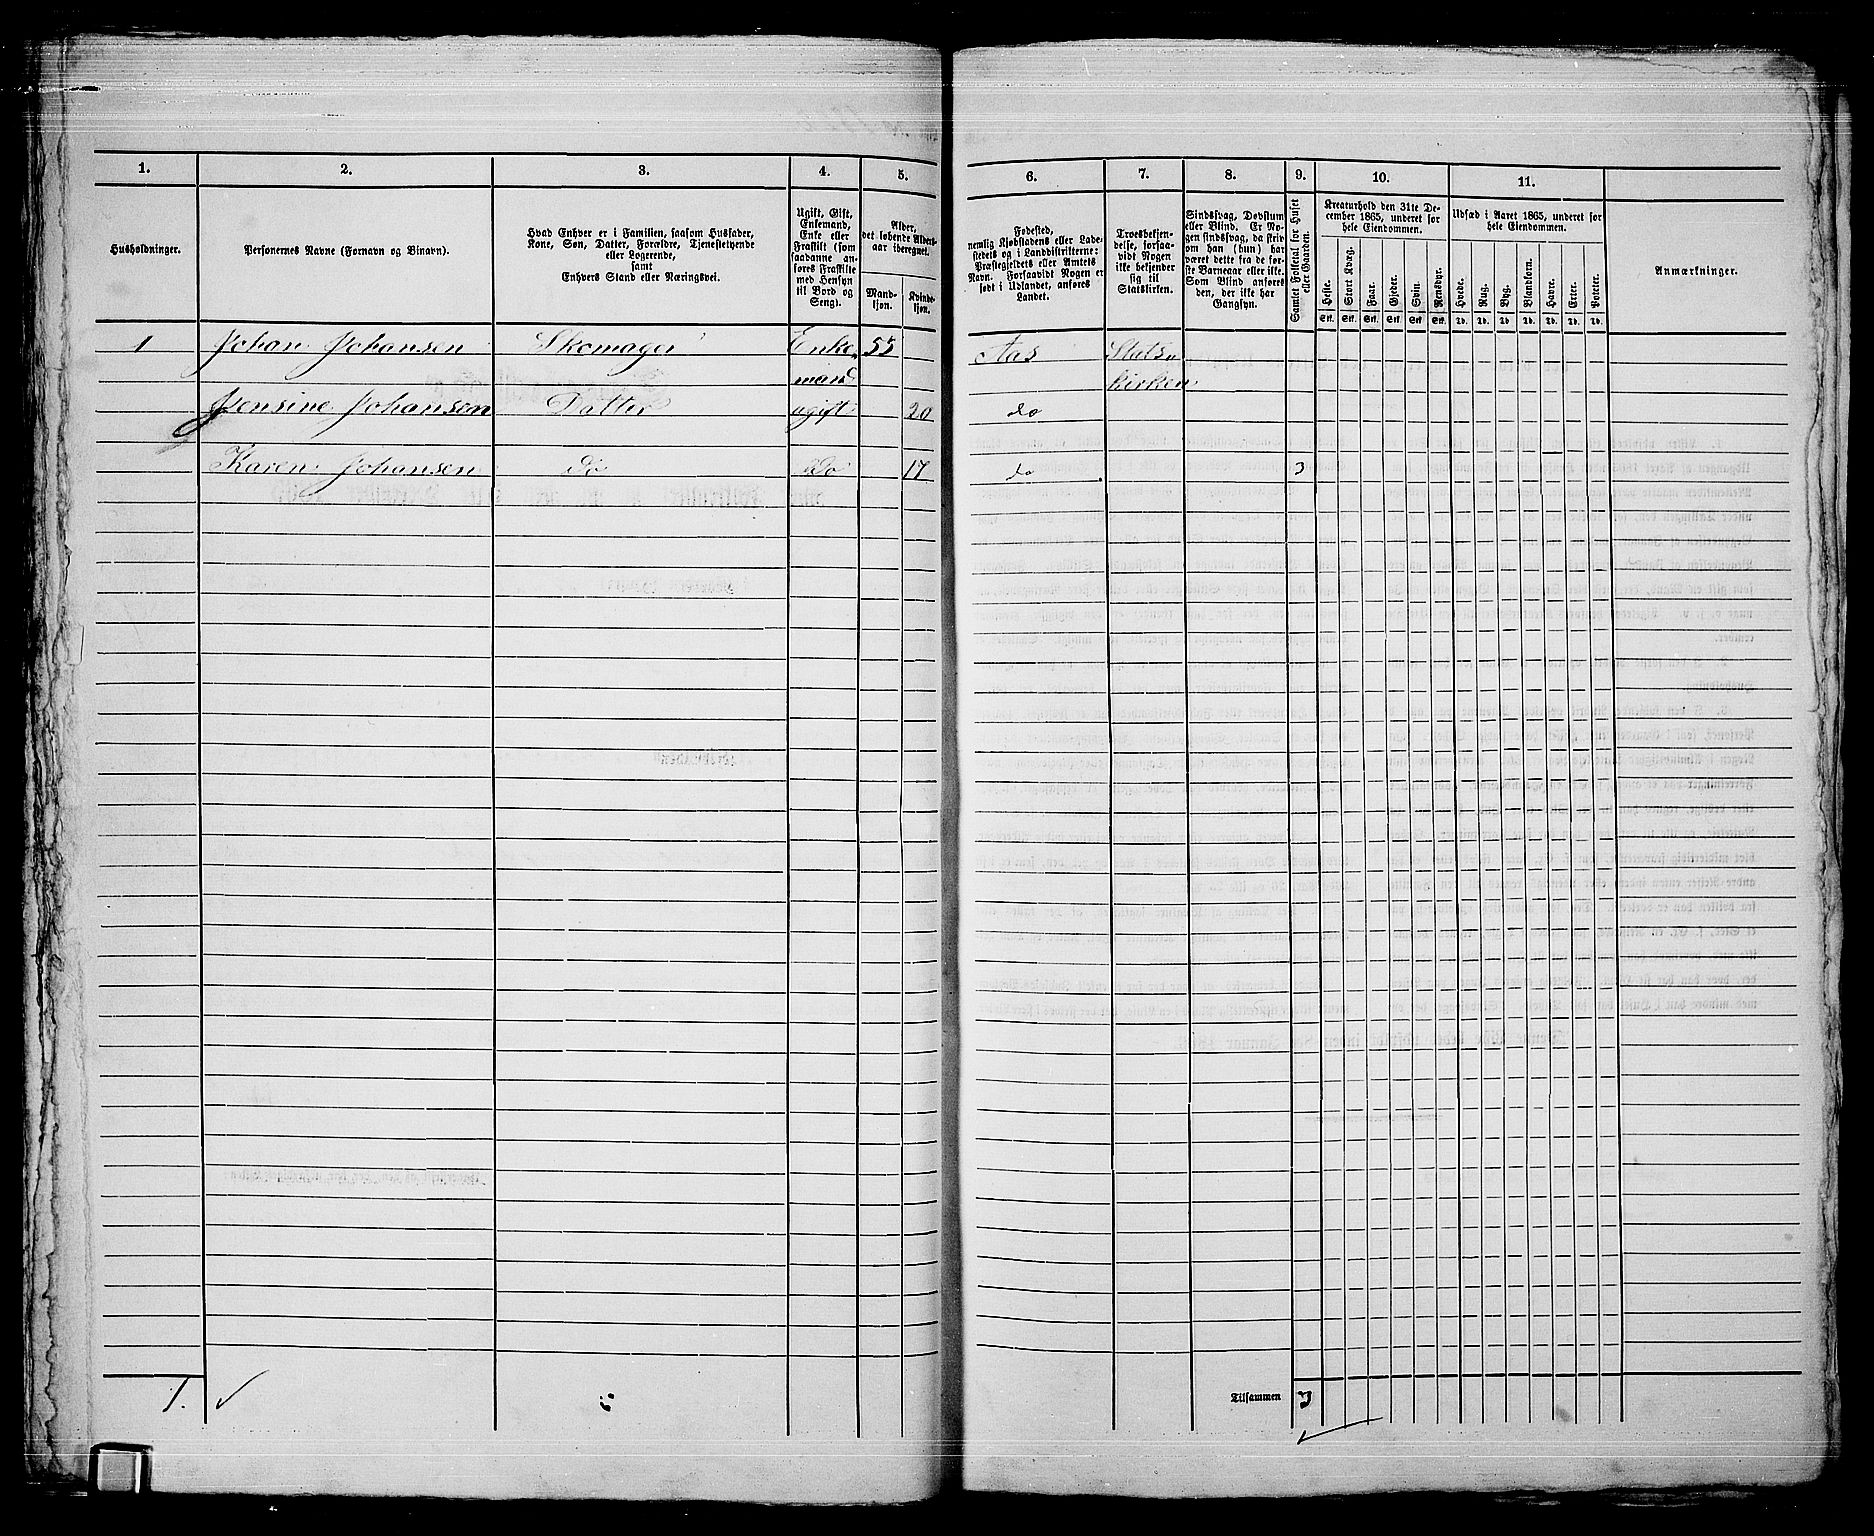 1.
2.
3.
4.
5.
6.
7.
8.
9.
10.
11.
Husholdninger.
Personernes Navne (Fornavn og Binavn).
Hvad Enhver er i Familien, saasom Husfader,
Kone, Søn, Datter, Forældre, Tjenestetyende
eller Logerende,
samt
Enhvers Stand eller Næringsvei.
Ugift, Gift,
Enkemand,
Enke eller
Fraskilt (som
saadanne an-
føres Fraskilte
med Hensyn
til Bord og
Seng).
Alder,
det løbende Alders-
aar iberegnet.
Mand-
kjøn.
Kvinde-
kjøn.
Fødested,
nemlig Kjøbstadens eller Lade-
stedets og i Landdistrikterne:
Præstegjeldets eller Amtets
Navn. Forsaavidt Nogen er
født i Udlandet, anføres
Landet.
Troesbekjen-
delse, forsaa-
vidt Nogen
ikke bekjender
sig til
Statskirken.
Sindssvag, Døvstum
eller Blind. Er No-
gen sindssvag, da skriv
om han (hun) har
været dette fra de før-
ste Barneaar eller ikke.
Som Blind anføres
den, der ikke har
Gangsyn.
Samlet Folketal for Huset
eller Gaarden.
Kreaturhold den 31te De-
cember 1865, underet for
hele Eiendommen.
Heste.
Stort Kvæg.
Faar.
Gjeder.
Svin.
Rensdyr.
Stk. Stk. Stk. Stk. Stk. Stk.
Udsæd i Aaret 1865, underet for
hele Eiendommen.
Hvede.
Rug.
Byg.
Blandkorn.
Havre.
Erter.
Poteter.
Td. Td. Td. Td. Td. Td. Td.
Anmærkninger.
1 Johan Johansen Skomager Enke- 55 Aas Stats-
mand kirken
Jensine Johansen Datter ugift 20 do
Karen Johansen do do 17 do 3
1.
Tilsammen 3